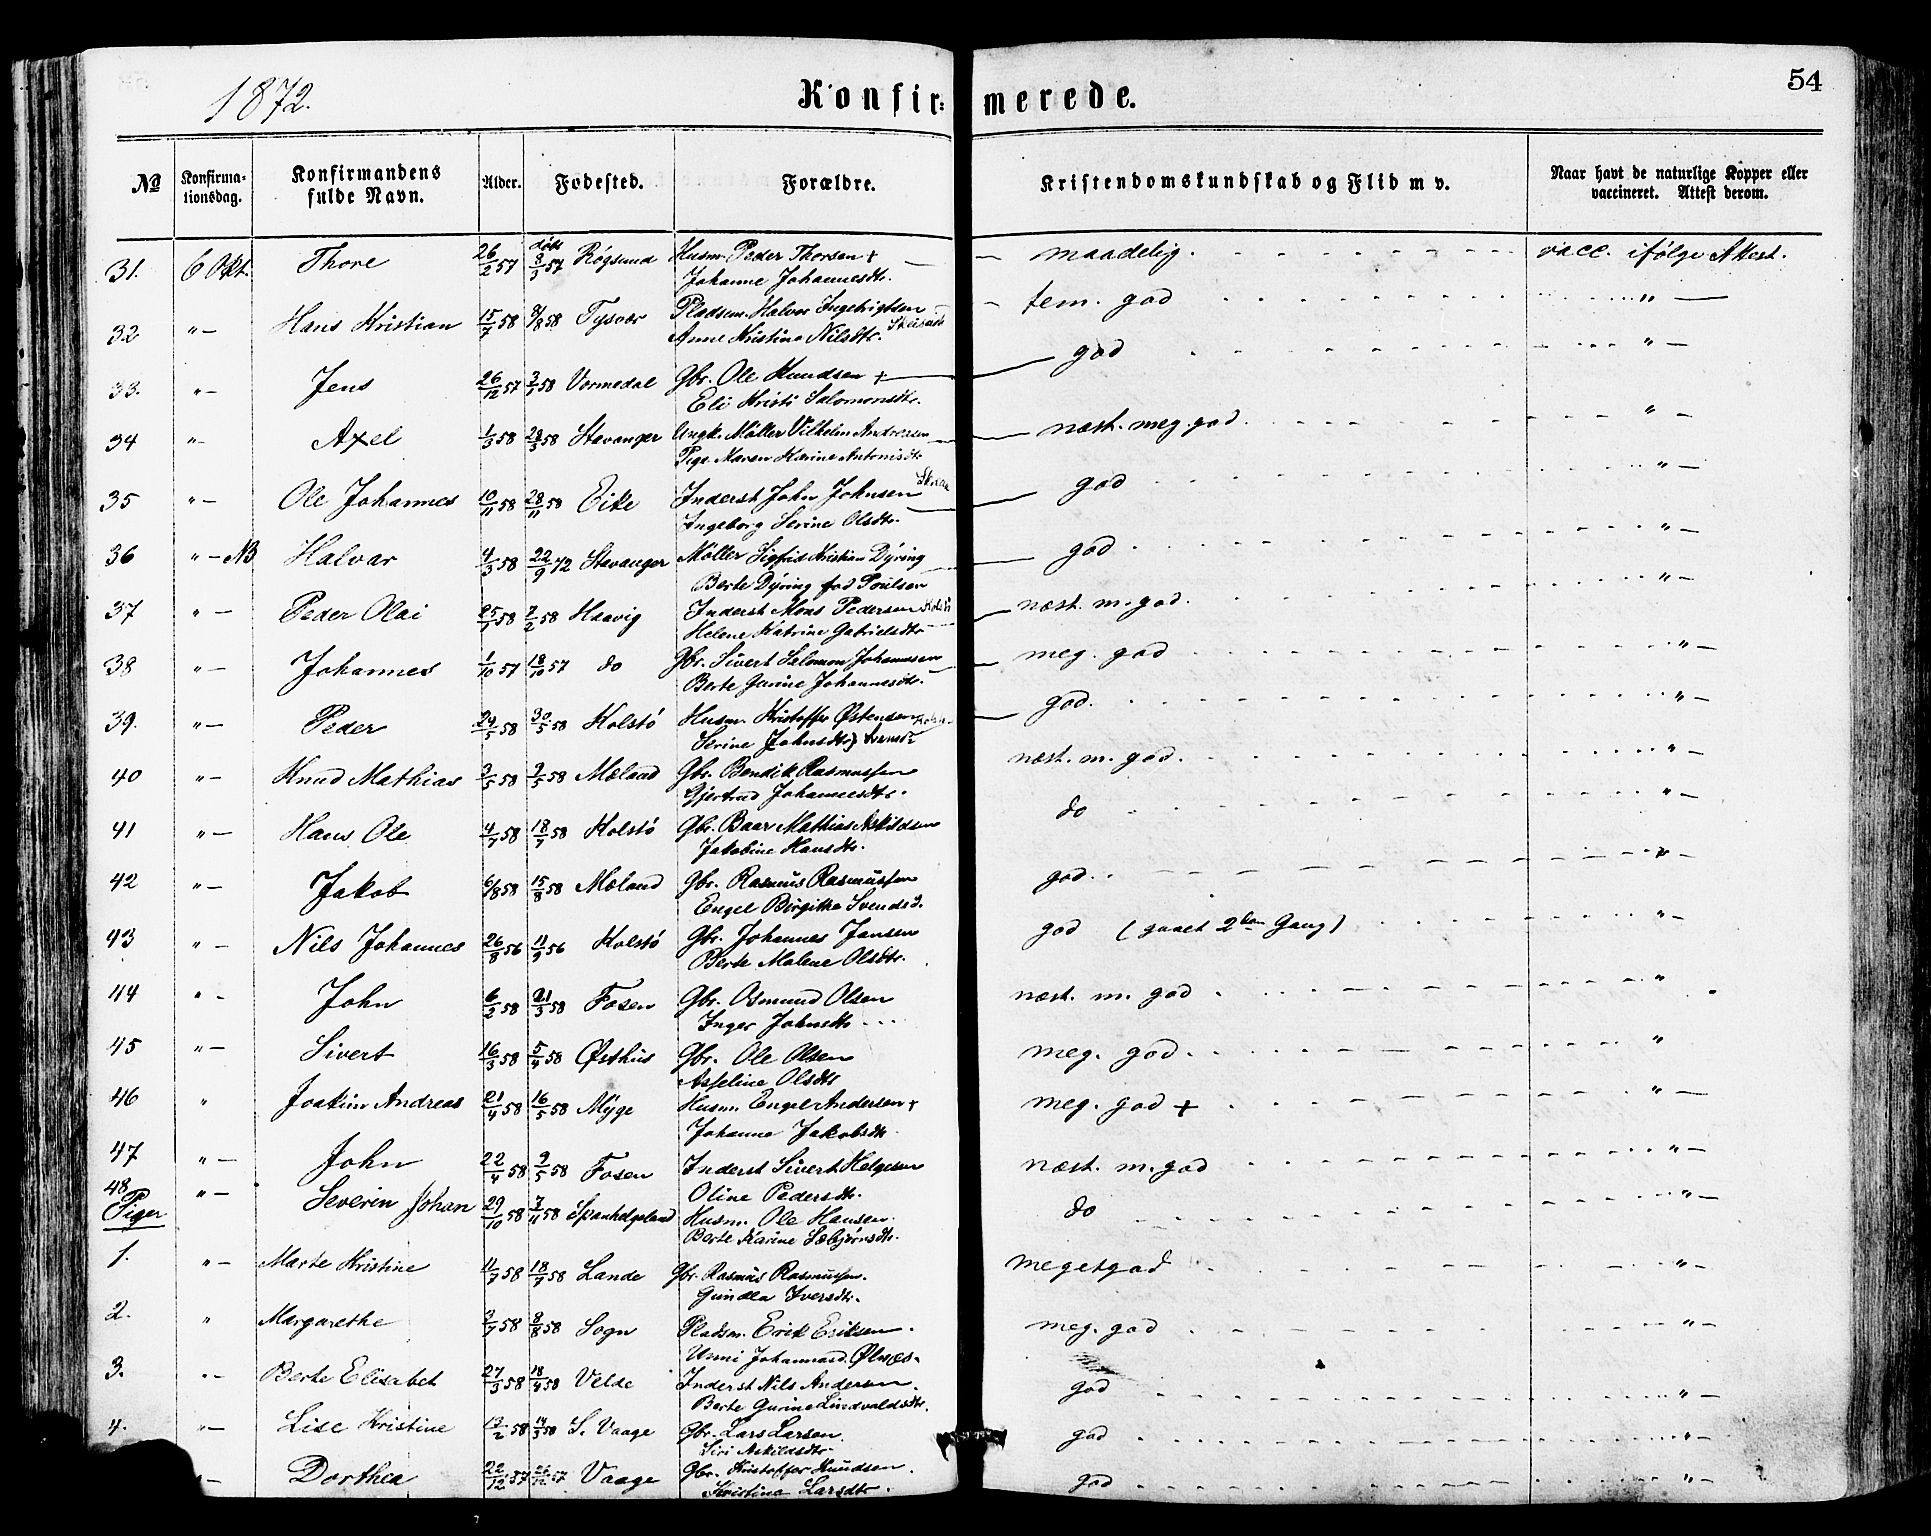 1872. Konfirmerede. 54
No Konfirmationsdag. Konfirmandens fulde Navn. Alder. Fødested. Forældre. Kristendomskundskab og Flid m v. Naar havt de naturlige Kopper eller vaccineret. Attest derom.
31. 6 Okt. Thore 26/2 57 døbt 8/3 57 Røgsund Husm. Peder Thorsen + maadelig. vacc. ifølge Attest.
Johanne Johannesdtr.
32 " — Hans Kristian 15/7 58 8/8 58 Tysvær Pladsm. Halvor Ingebrigtsen tem. god " —
Anne Kristine Nilsdtr.
33. " — Jens 26/12 57 3/1 58 Vormedal Gbr. Ole Knudsen + god " —
Eli Kristi Salomonsdtr.
34 " — Axel 1/3 58 28/3 58 Stavanger Ungk. Møller Vilhelm Andersen næst. meg. god. " —
Pige Maren Karine Antonisdtr
35 " — Ole Johannes 10/11 58 28/11 58 Eike Inderst John Johnsen god " —
Ingeborg Serine Olsdtr.
36 " — NB Halvar 4/3 58 22/9 72 Stavanger Møller Sigfrid Kristian Dyring god " —
Berte Dyring fød Poulsen
37 " — Peder Olai 25/1 58 7/2 58 Haavig Inderst Mons Pedersen Kolstø næst. m. god. " —
Helene Katrine Gabrielsdtr
38 " — Johannes 1/10 57 18/10 57 do Gbr. Sivert Salomon Johannesen meg. god " —
Berte Gurine Johannesdtr.
39. " — Peder 24/5 58 30/5 58 Kolstø Husm. Kristoffer Østensen god. " —
Serine (Johnsdtr)
40 " — Knud Mathias 3/5 58 9/5 58 Mæland Gbr. Bendik Rasmussen næst. m. god. " —
Gjertrud Johannesdtr.
41 " — Hans Ole 4/7 58 18/7 58 Kolstø Gbr. Baar Mathias Askildsen do " —
Jakobine Hansdtr.
42 " — Jakob 6/8 58 15/8 58 Mæland Gbr. Rasmus Rasmussen god. " —
Engel Birgitha Svendsd.
43 " — Nils Johannes 26/8 56 11/9 56 Kolstø Gbr. Johannes Jansen god (gaaet 2den Gang) " —
Berte Malene Olsdtr.
44 " — John 6/2 58 21/3 58 Fosen Gbr. Osmund Olsen næst. m. god "
Inger Johnsdtr
45 " — Sivert 16/3 58 5/4 58 Østhus Gbr. Ole Olsen meg. god. "
Asseline Olsdtr
46 " Joakim Andreas 21/4 58 16/5 58 Myge Husm. Engel Andersen + meg. god + " —
Johanne Jakobsdtr
47 " — John 22/4 58 9/5 58 Fosen Inderst Sivert Helgesen næst. m. god " —
Oline Pedersdtr.
48 " — Severin Johan 29/10 58 7/11 58 Spanhelgeland Husm. Ole Hansen. do " —
Berte Karine Sæbjørnsdtr.
Piger
1. " — Marte Kristine 11/7 58 18/7 58 Lande Gbr. Rasmus Rasmussen. megetgod " —
Gundla Iversdtr.
2. " Margarethe 3/7 58 8/8 58 Sogn Pladsm. Erik Eriksen. meg. god " —
Unni Johannesd. Ølnæs.
3. " — Berte Elisabet 27/3 58 18/4 58 Velde Inderst Nils Andersen. god " —
Berte Gurine Lindvaldsdtr.
4. " — Lise Kristine 13/2 58 14/3 58 S. Vaage Gbr. Lars Larsen. god " —
Siri Askildsdtr.
" — Dorthea 22/12 57 26/12 57 Vaage Gbr. Kristoffer Knudsen. god " —
Kristine Larsdtr.